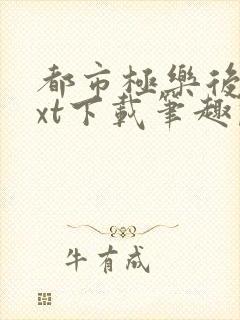 都市極樂後
xt下載筆趣
牛有成